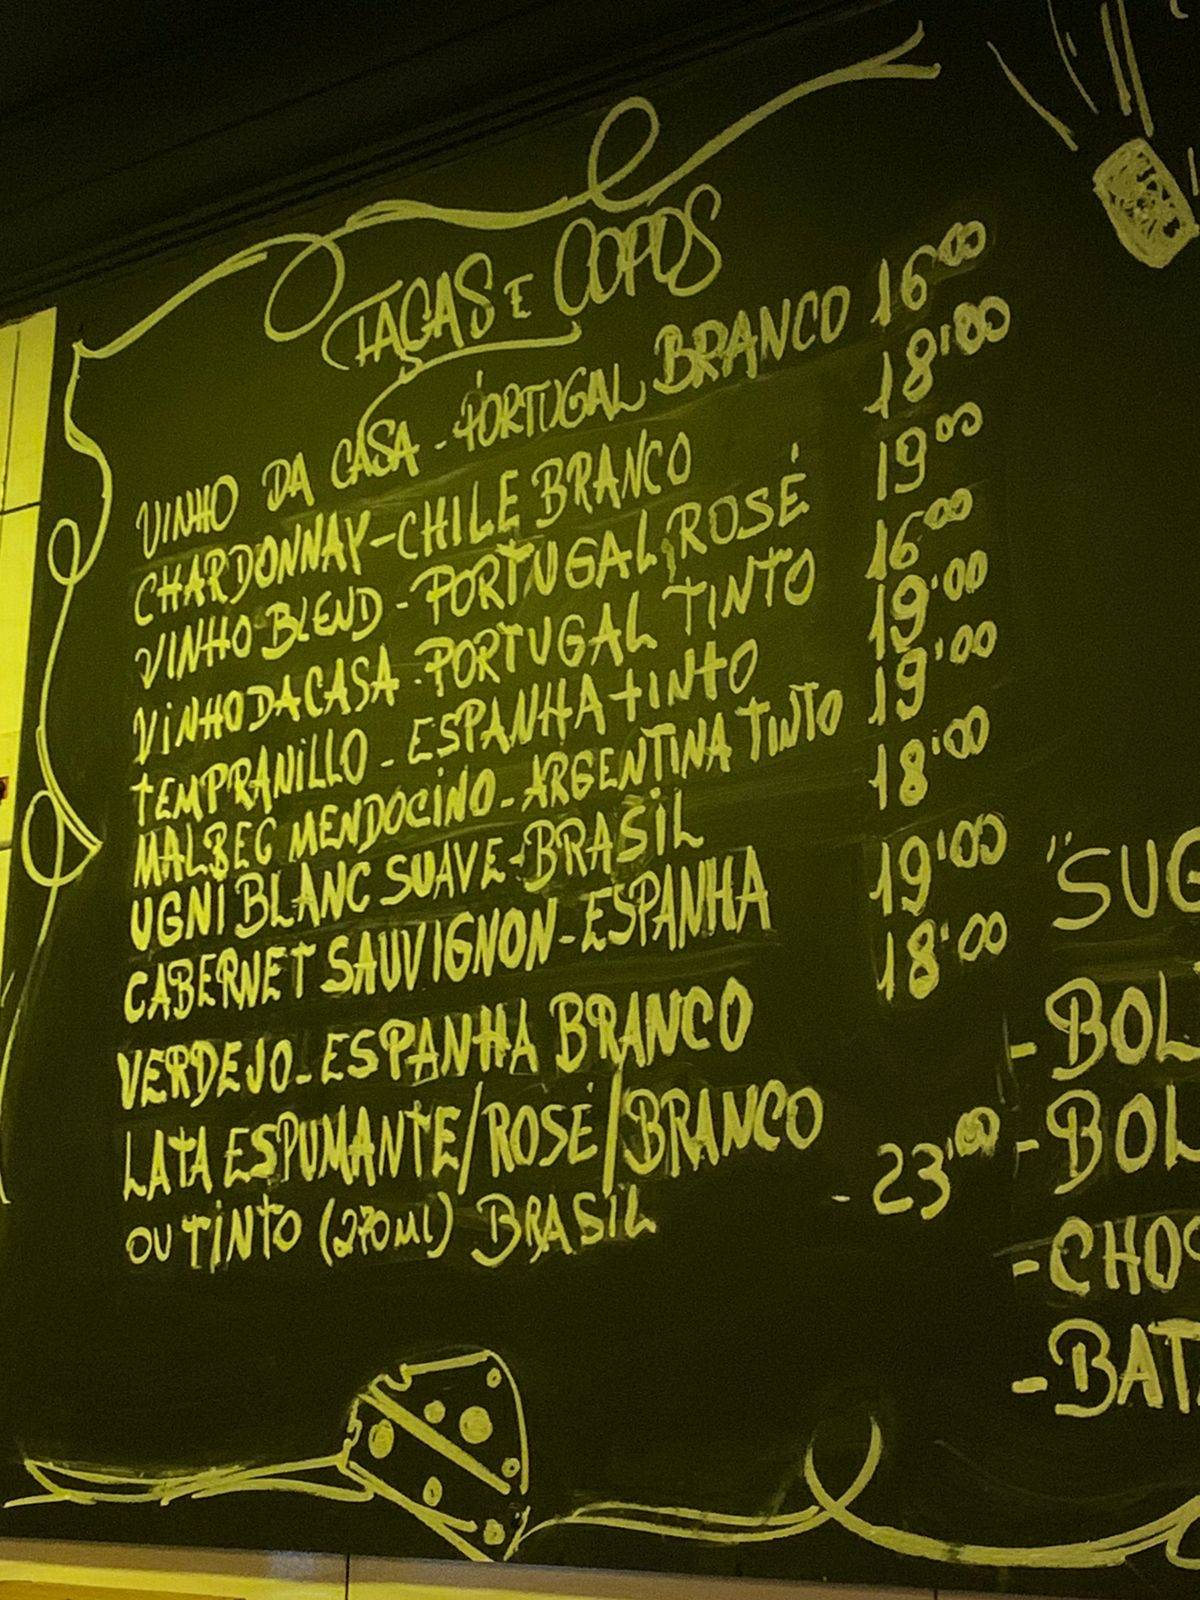 TAÇAS E COPOS
VINHO DA CASA - PORTUGAL BRANCO 16,00
CHARDONNAY - CHILE BRANCO 18,00
VINHO BLEND - PORTUGAL ROSÉ 19,00
VINHO DA CASA - PORTUGAL TINTO 16,00
TEMPRANILLO - ESPANHA TINTO 19,00
MALBEC MENDOCINO - ARGENTINA TINTO 19,00
UGNI BLANC SUAVE - BRASIL 18,00
CABERNET SAUVIGNON - ESPANHA 19,00
VERDEJO - ESPANHA BRANCO 18,00
LATA ESPUMANTE/ROSÉ/BRANCO
OU TINTO (270ml) BRASIL - 23,00
"SUG
- BOL
- BOL
- CHO
- BAT